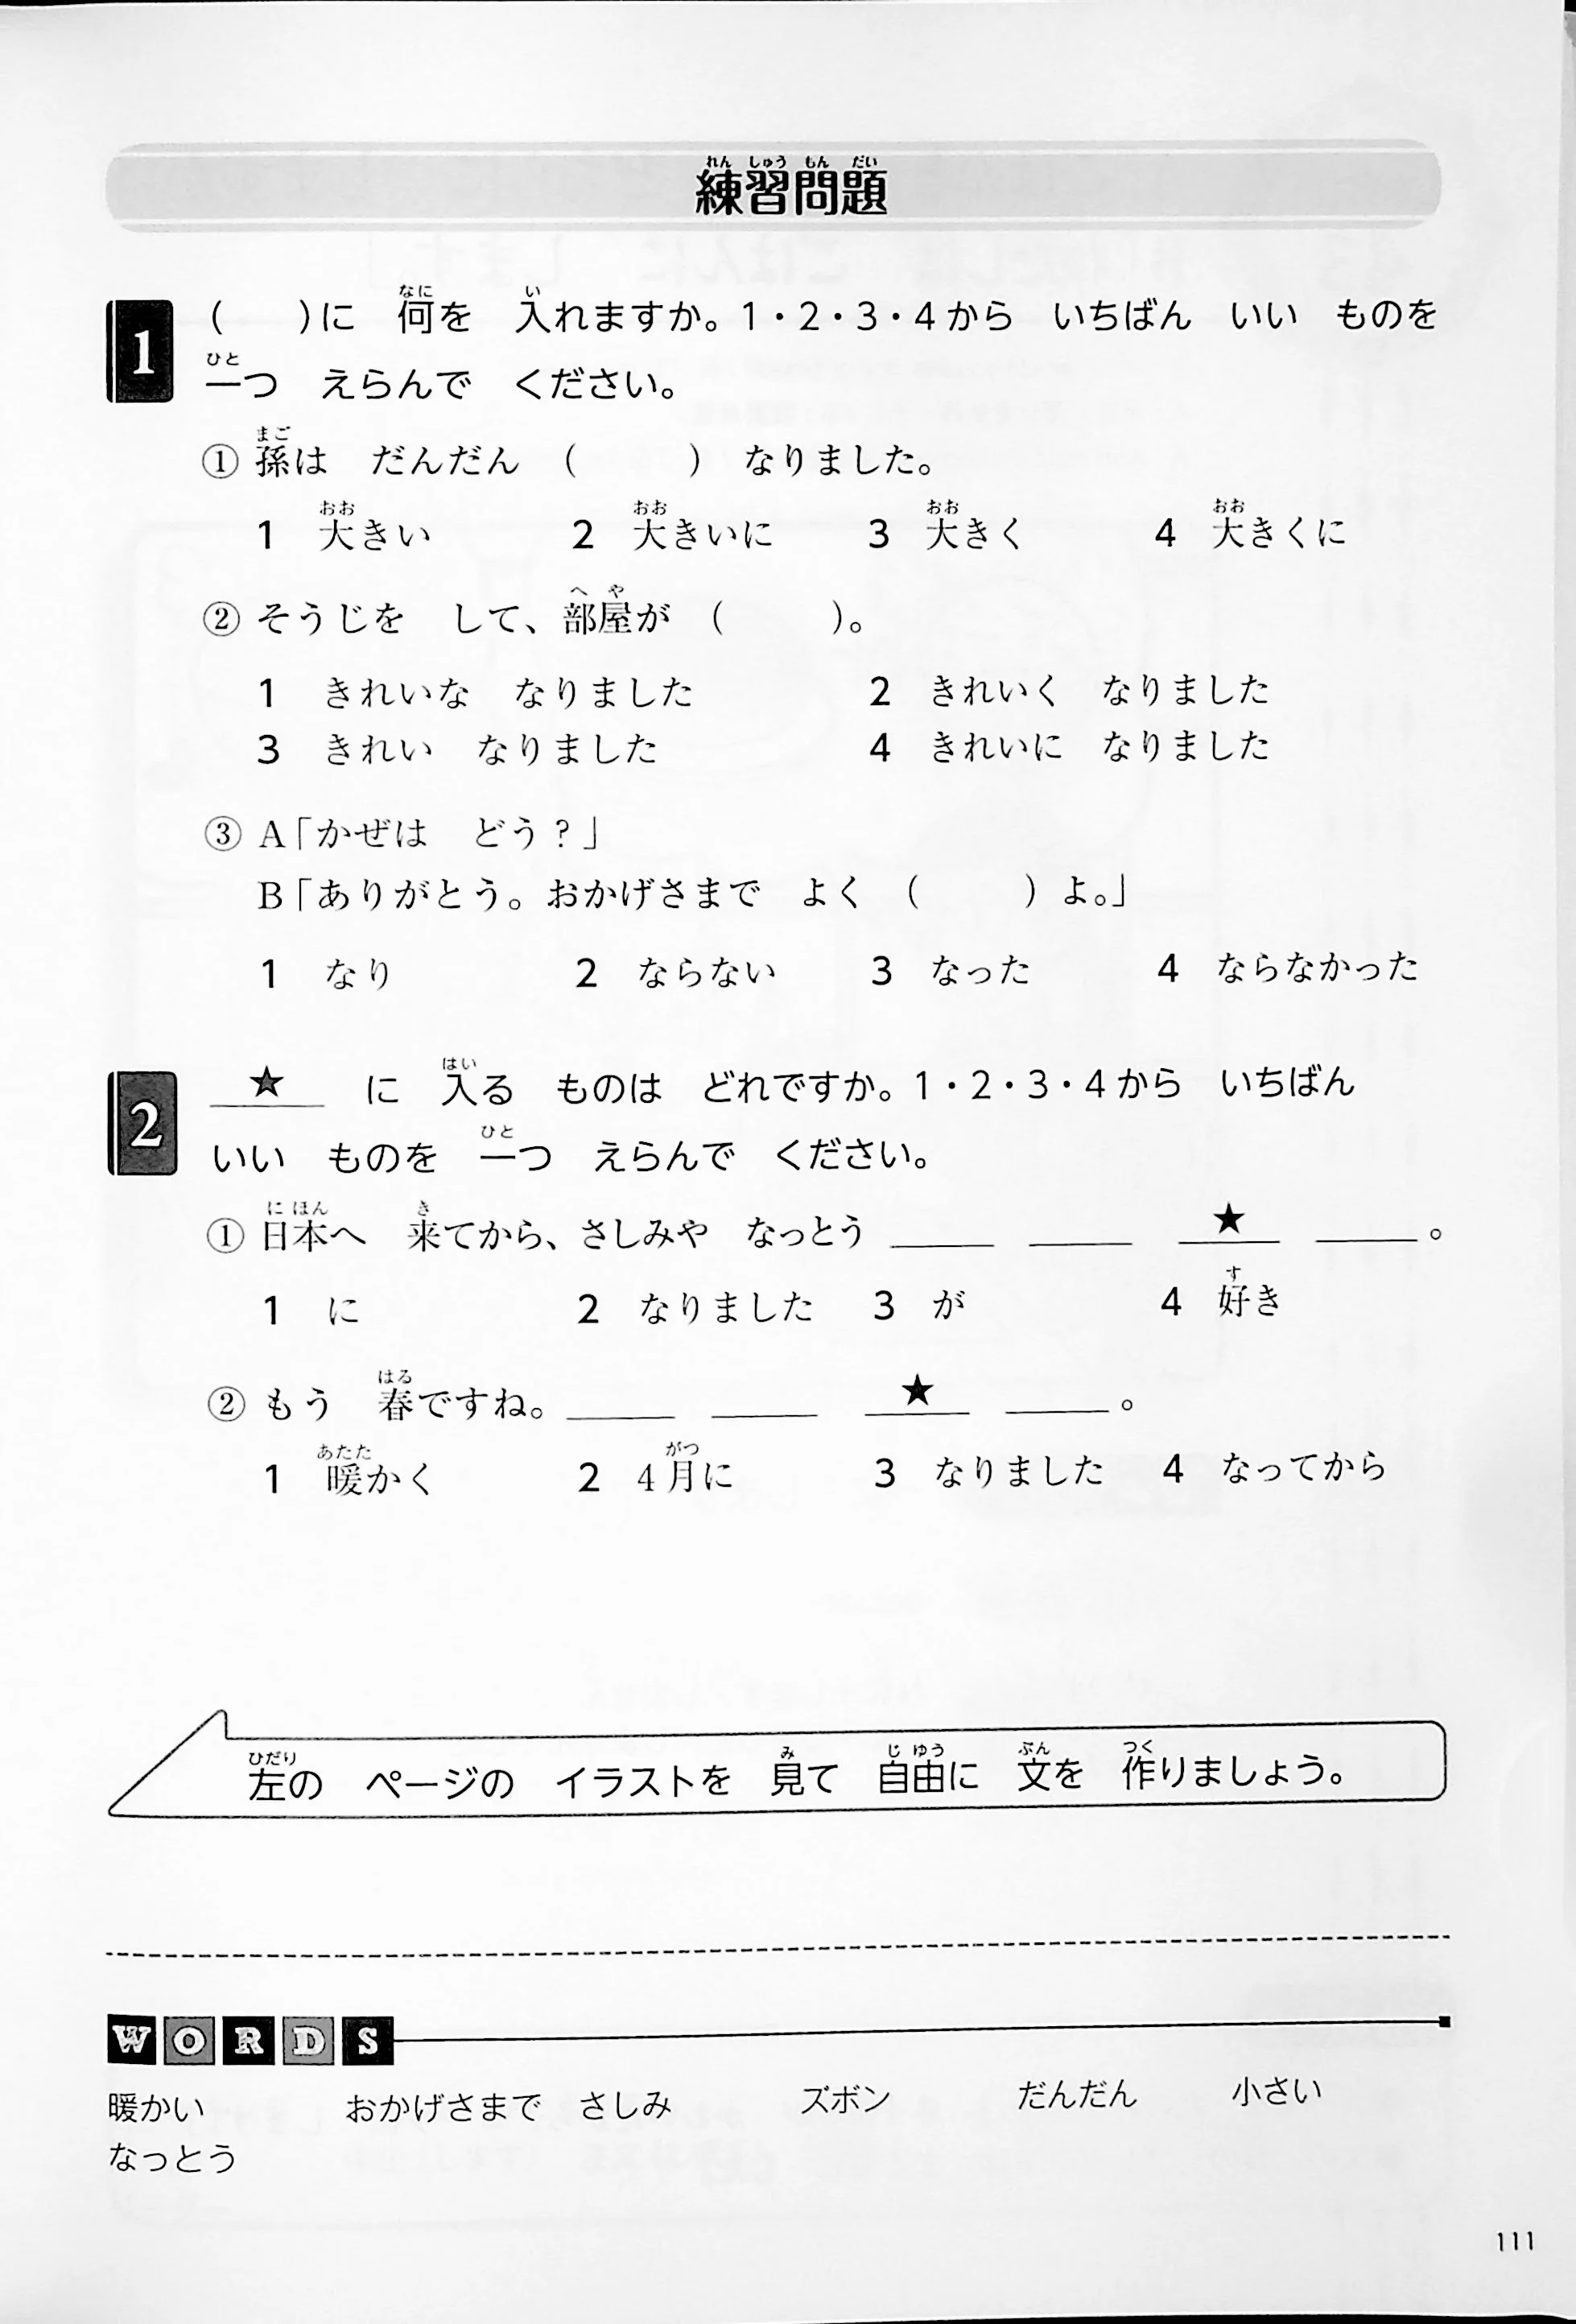 練習問題
1 （　　）に　何を　入れますか。1・2・3・4から　いちばん　いい　ものを
一つ　えらんで　ください。
① 孫は　だんだん　（　　　）　なりました。
1　大きい　2　大きいに　3　大きく　4　大きくに
② そうじを　して、部屋が　（　　　）。
1　きれいな　なりました　2　きれいく　なりました
3　きれい　なりました　4　きれいに　なりました
③ A「かぜは　どう？」
B「ありがとう。おかげさまで　よく　（　　　）よ。」
1　なり　2　ならない　3　なった　4　ならなかった
2 ★　に　入る　ものは　どれですか。1・2・3・4から　いちばん
いい　ものを　一つ　えらんで　ください。
① 日本へ　来てから、さしみや　なっとう　＿＿＿　＿＿＿　★　＿＿＿。
1　に　2　なりました　3　が　4　好き
② もう　春ですね。＿＿＿　＿＿＿　★　＿＿＿。
1　暖かく　2　4月に　3　なりました　4　なってから
左の　ページの　イラストを　見て　自由に　文を　作りましょう。
WORDS
暖かい　おかげさまで　さしみ　ズボン　だんだん　小さい
なっとう
111